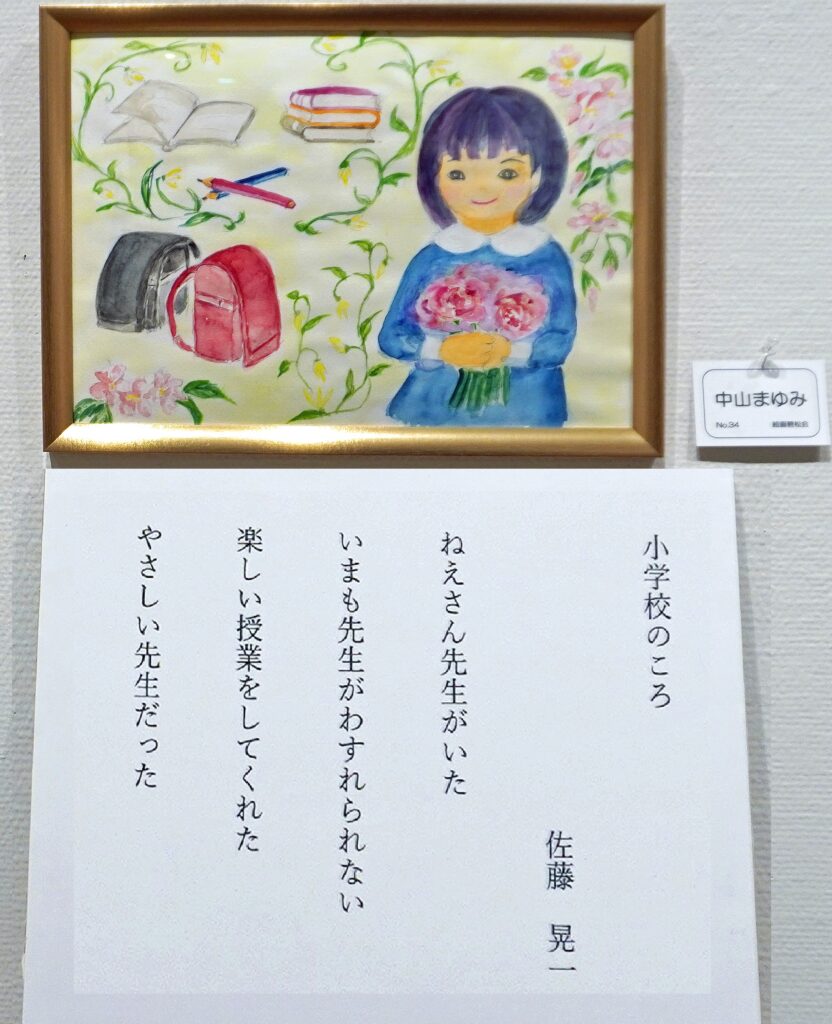 中山まゆみ
No.34
小学校のころ
佐藤 晃一
ねえさん先生がいた
いまも先生がわすれられない
楽しい授業をしてくれた
やさしい先生だった